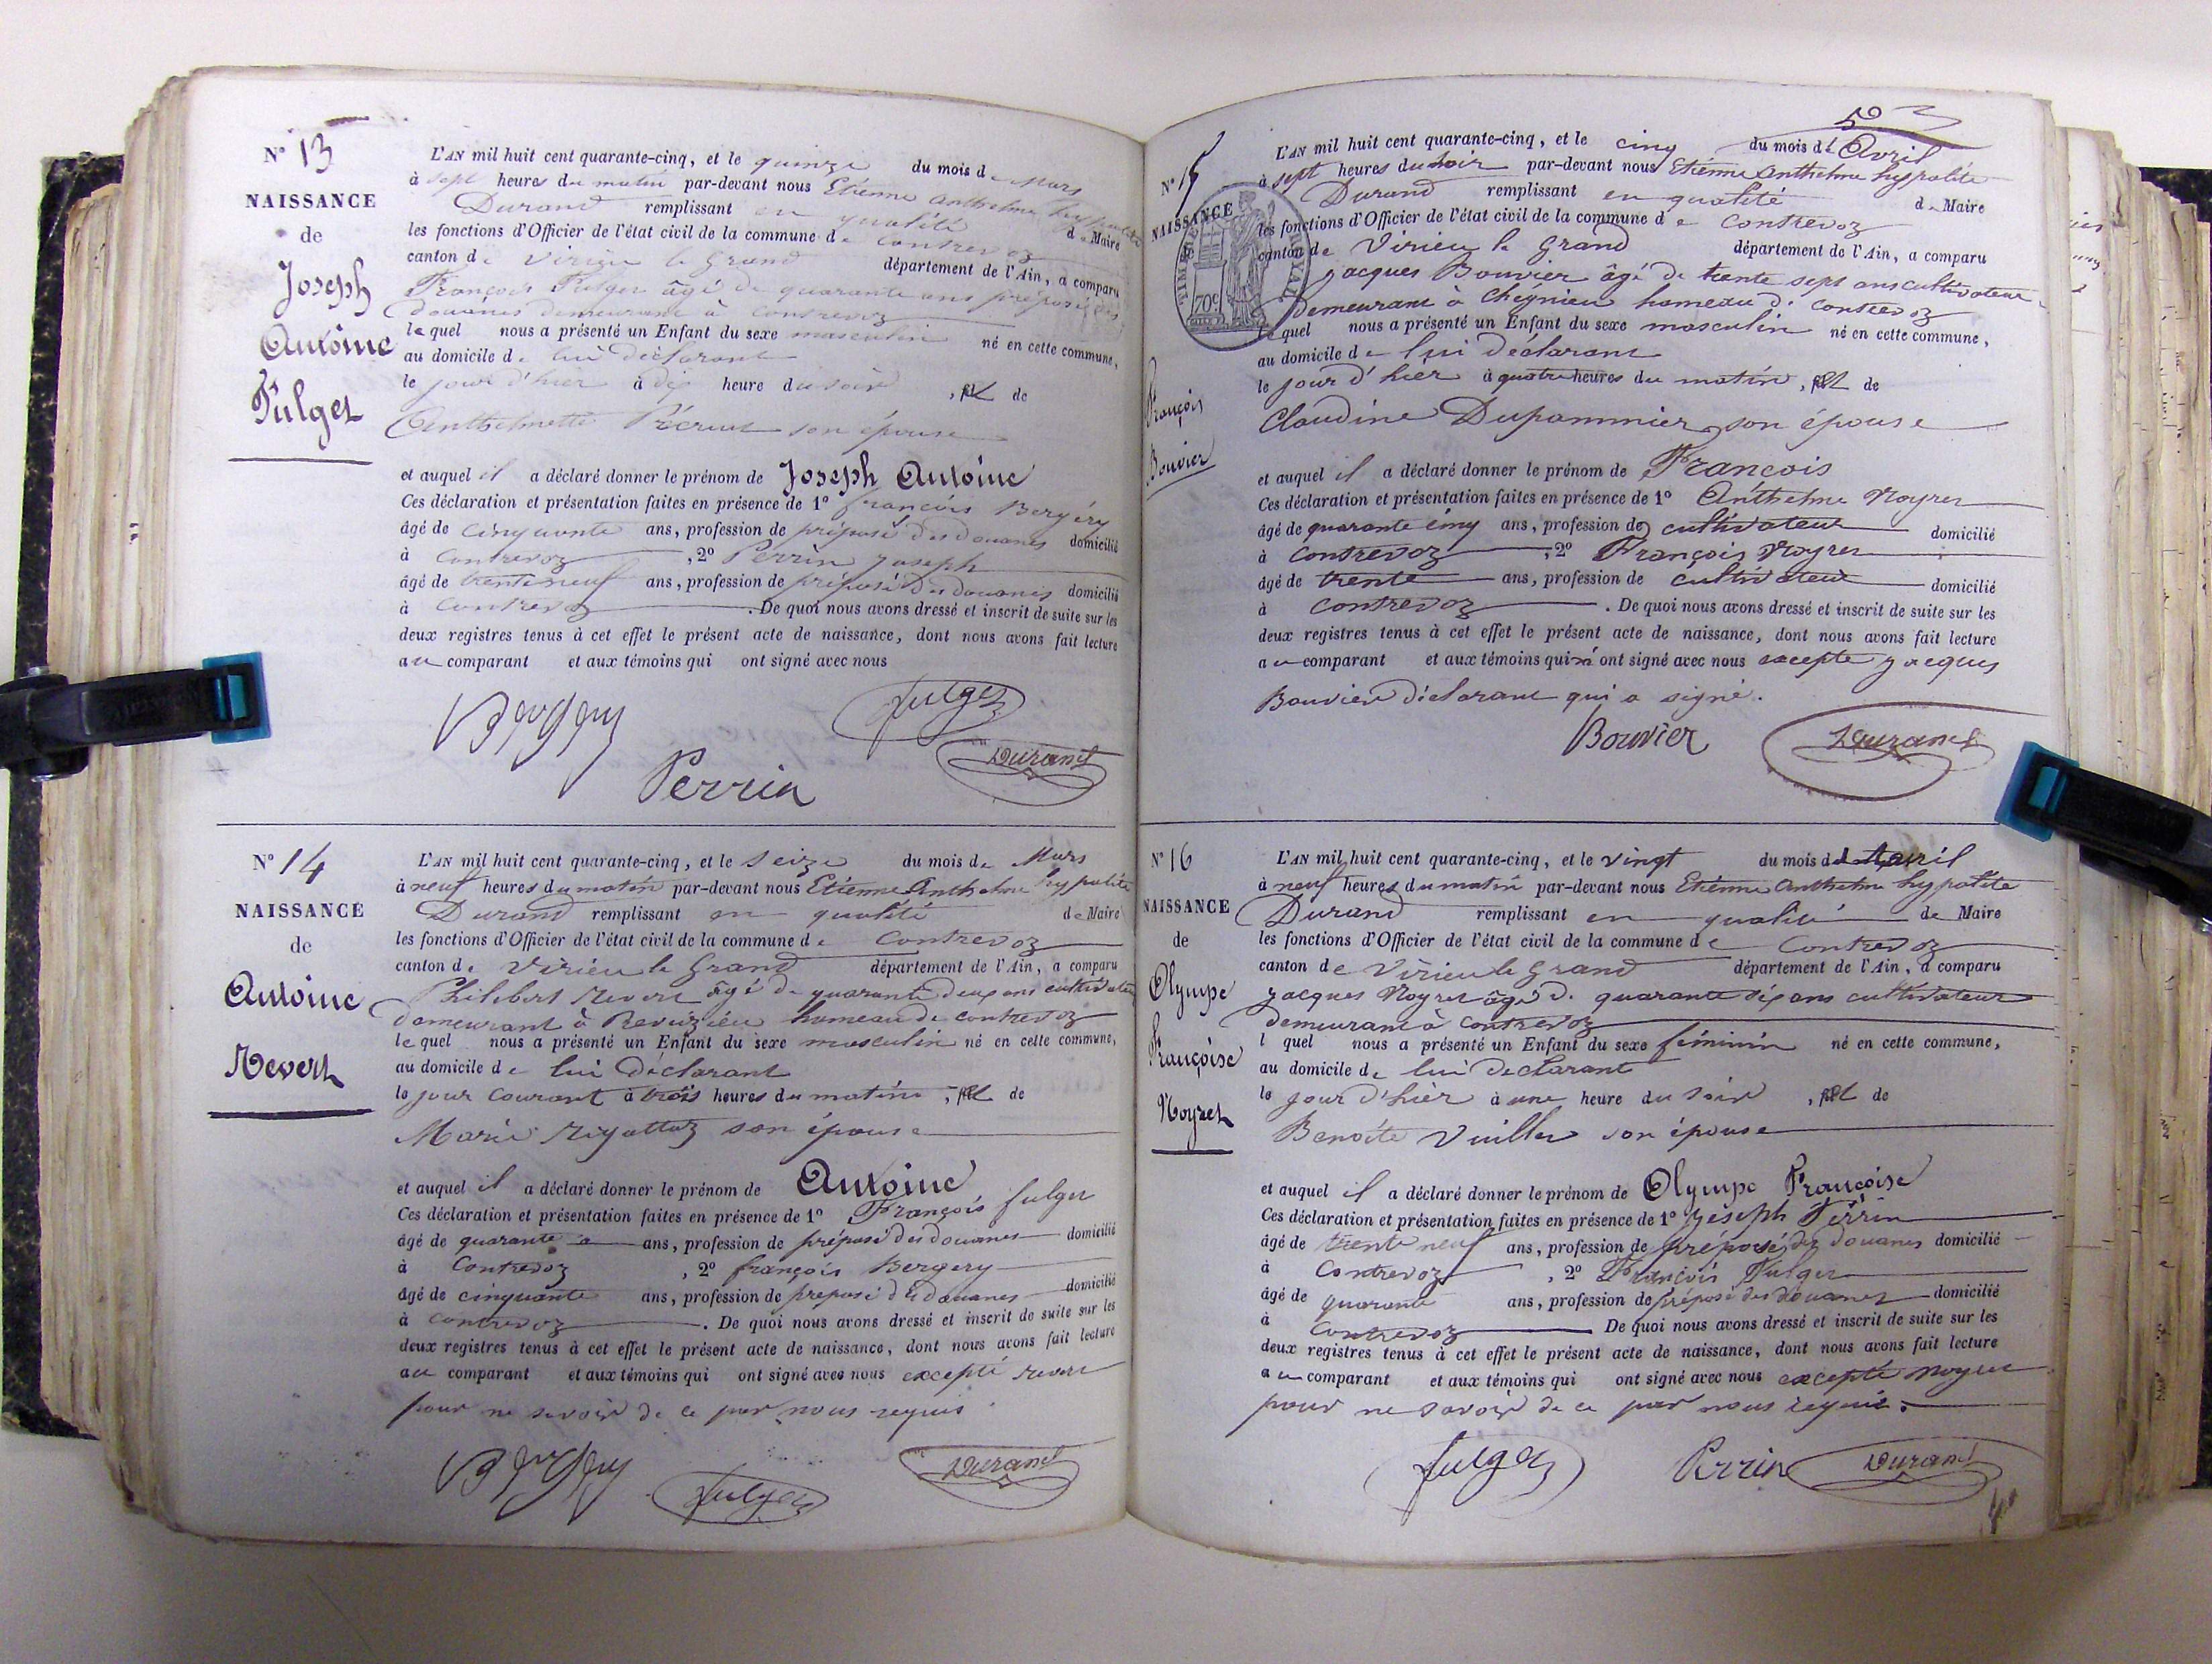 N° 13
NAISSANCE
de
Joseph
Antoine
Fulger
L'AN mil huit cent quarante-cinq, et le quinze du mois de Mars
à sept heures du matin par-devant nous Etienne anthelme hypolite
Durand remplissant en qualité de Maire
les fonctions d'Officier de l'état civil de la commune de Contrevoz
canton de Virieu le Grand département de l'Ain, a comparu
François Fulger âgé de quarante ans préposé des
douanes demeurant à Contrevoz
lequel nous a présenté un Enfant du sexe masculin né en cette commune,
au domicile de lui déclarant
le jour d'hier à dix heure du soir, fils de
Anthelmette son épouse
et auquel il a déclaré donner le prénom de Joseph Antoine
Ces déclaration et présentation faites en présence de 1° françois Bergery
âgé de cinquante ans, profession de préposé des douanes domicilié
à Contrevoz, 2° Perrin Joseph
âgé de trente neuf ans, profession de préposé des douanes domicilié
à Contrevoz. De quoi nous avons dressé et inscrit de suite sur les
deux registres tenus à cet effet le présent acte de naissance, dont nous avons fait lecture
au comparant et aux témoins qui ont signé avec nous
Bergery Fulger
Durand
Perrin
N° 14
NAISSANCE
de
Antoine
Revert
L'AN mil huit cent quarante-cinq, et le seize du mois de Mars
à neuf heures du matin par-devant nous Etienne Anthelme hypolite
Durand remplissant en qualité de Maire
les fonctions d'Officier de l'état civil de la commune de Contrevoz
canton de Virieu le Grand département de l'Ain, a comparu
Philibert Revert âgé de quarante deux ans cultivateur
demeurant à Preveyzieu hameau de Contrevoz
lequel nous a présenté un Enfant du sexe masculin né en cette commune,
au domicile de lui déclarant
le jour courant à trois heures du matin, fils de
Marie Rigottaz son épouse
et auquel il a déclaré donner le prénom de Antoine
Ces déclaration et présentation faites en présence de 1° François fulger
âgé de quarante ans, profession de préposé des douanes domicilié
à Contrevoz, 2° françois Bergery
âgé de cinquante ans, profession de préposé des douanes domicilié
à Contrevoz. De quoi nous avons dressé et inscrit de suite sur les
deux registres tenus à cet effet le présent acte de naissance, dont nous avons fait lecture
au comparant et aux témoins qui ont signé avec nous excepté revert
pour ne savoir de ce par nous requis
Bergery Fulger Durand
50
N° 15
NAISSANCE
de
François
Bouvier
TIMBRE ROYAL
70c
L'AN mil huit cent quarante-cinq, et le cinq du mois d'Avril
à sept heures du soir par-devant nous Etienne Anthelme hypolite
Durand remplissant en qualité de Maire
les fonctions d'Officier de l'état civil de la commune de Contrevoz
canton de Virieu le Grand département de l'Ain, a comparu
Jacques Bouvier âgé de trente sept ans cultivateur
demeurant à Cheignieu hameau de Contrevoz
lequel nous a présenté un Enfant du sexe masculin né en cette commune,
au domicile de lui déclarant
le jour d'hier à quatre heures du matin, fils de
Claudine Dupommier son épouse
et auquel il a déclaré donner le prénom de François
Ces déclaration et présentation faites en présence de 1° Anthelme Noyret
âgé de quarante cinq ans, profession de cultivateur domicilié
à Contrevoz, 2° François Noyret
âgé de trente ans, profession de cultivateur domicilié
à Contrevoz. De quoi nous avons dressé et inscrit de suite sur les
deux registres tenus à cet effet le présent acte de naissance, dont nous avons fait lecture
au comparant et aux témoins qui n'ont signé avec nous excepté Jacques
Bouvier déclarant qui a signé.
Bouvier Durand
N° 16
NAISSANCE
de
Olympe
Françoise
Noyret
L'AN mil huit cent quarante-cinq, et le vingt du mois d'Avril
à neuf heures du matin par-devant nous Etienne Anthelme hypolite
Durand remplissant en qualité de Maire
les fonctions d'Officier de l'état civil de la commune de Contrevoz
canton de Virieu le Grand département de l'Ain, a comparu
Jacques Noyret âgé de quarante six ans cultivateur
demeurant à Contrevoz
l quel nous a présenté un Enfant du sexe féminin né en cette commune,
au domicile de lui déclarant
le jour d'hier à une heure du soir, fille de
Benoîte Vuiller son épouse
et auquel il a déclaré donner le prénom de Olympe Françoise
Ces déclaration et présentation faites en présence de 1° Joseph Perrin
âgé de trente neuf ans, profession de préposé des douanes domicilié
à Contrevoz, 2° François Fulger
âgé de quarante ans, profession de préposé des douanes domicilié
à Contrevoz De quoi nous avons dressé et inscrit de suite sur les
deux registres tenus à cet effet le présent acte de naissance, dont nous avons fait lecture
au comparant et aux témoins qui ont signé avec nous excepté noyret
pour ne savoir de ce par nous requis.
Fulger Perrin Durand